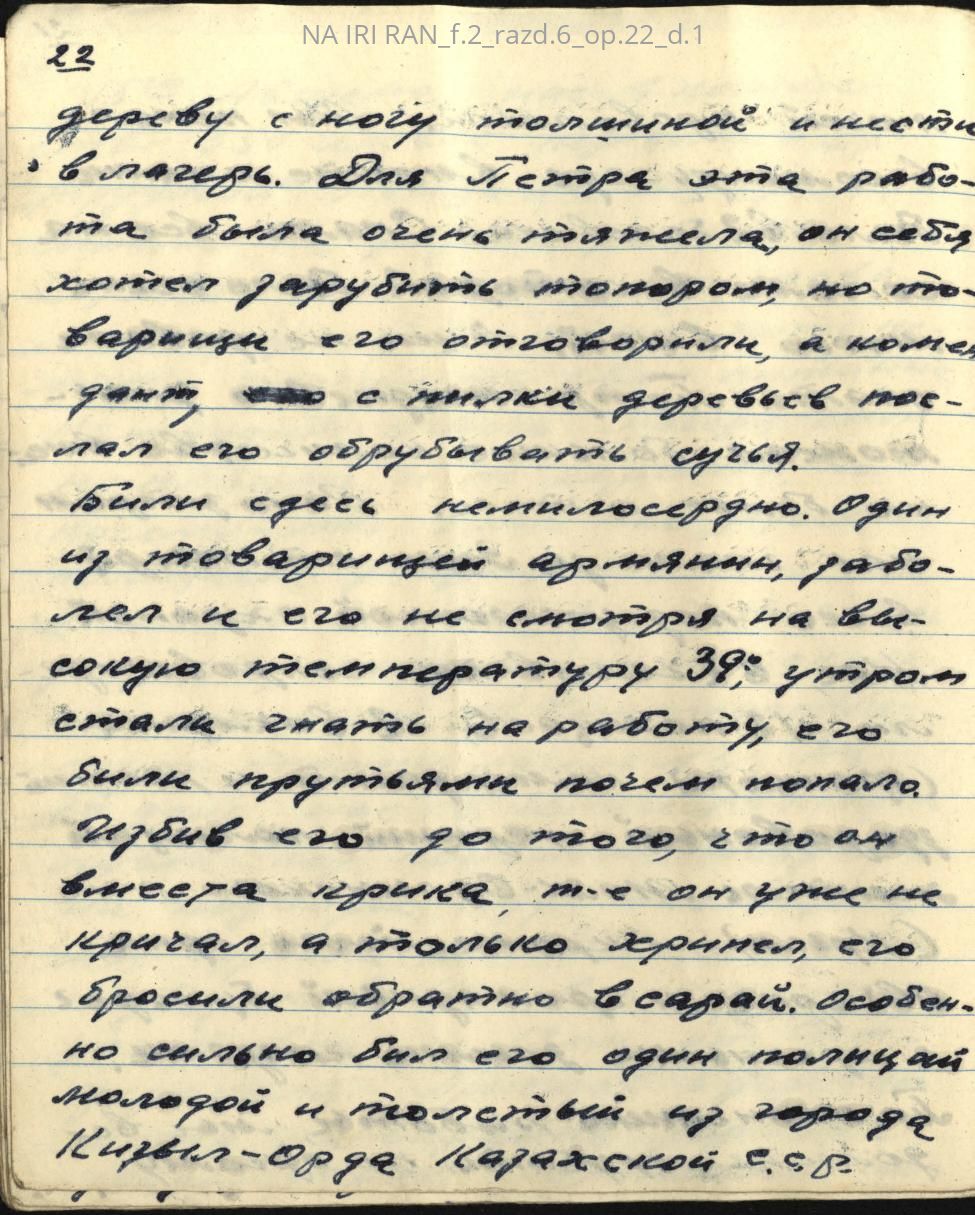 NA IRI RAN_f.2_razd.6_op.22_d.1
22
дереву с ногу толщиной и нести
в лагерь. Для Петра эта рабо-
та была очень тяжела, он себя
хотел зарубить топором, но то-
варищи его отговорили, а комен
дант, с пилки деревьев пос-
лал его обрубывать сучья.
Били сдесь немилосердно. Один
из товарищей армянин, забо-
лел и его не смотря на вы-
сокую температуру 39°, утром
стали гнать на работу, его
били прутьями почем попало.
Избив его до того, что он
вместа крика, т-е он уже не
кричал, а только хрипел, его
бросили обратно в сарай. Особен-
но сильно бил его один полицай
молодой и толстый из города
Кизыл-Орда Казахской с.с.р.